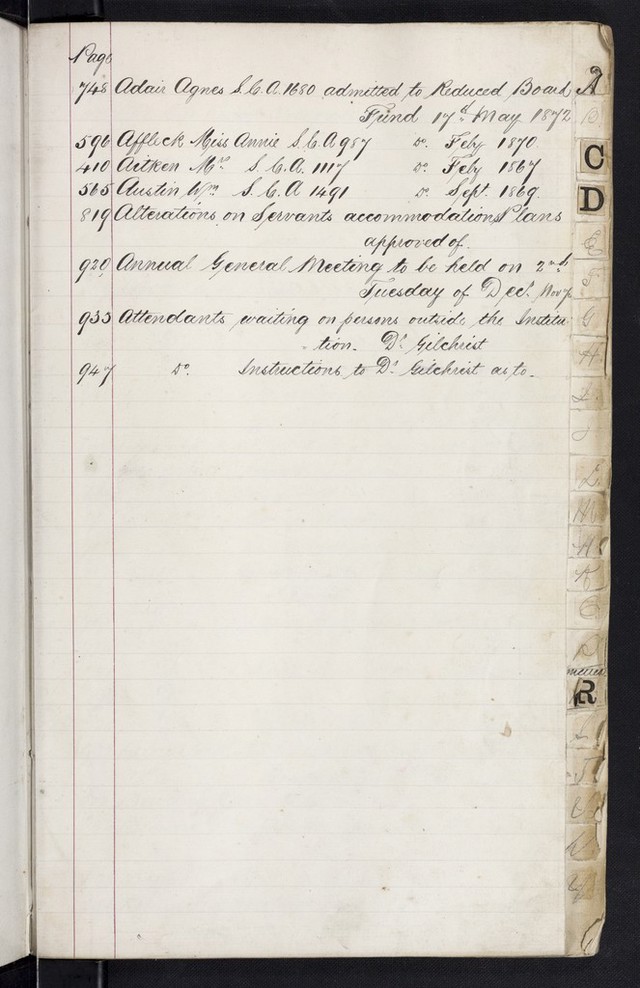 Page
748 Adair Agnes S.C.A. 1680 admitted to Reduced Board A
Fund 17th May 1872 B
596 Affleck Miss Annie S.C.A 987 Do. Feby 1870
410 Aitken Mrs S.C.A. 1117 Do. Feby 1867 C
565 Austin Wm S.C.A 1491 Do. Sept. 1869. D
819 Alterations on Servants accommodation Plans
approved of.
920 Annual General Meeting to be held on 2nd
Tuesday of Decr.
933 Attendants waiting on persons outside the Institu- G
tion. Dr Gilchrist H
947 Do. Instructions to Dr Gilchrist as to.
L
M
R